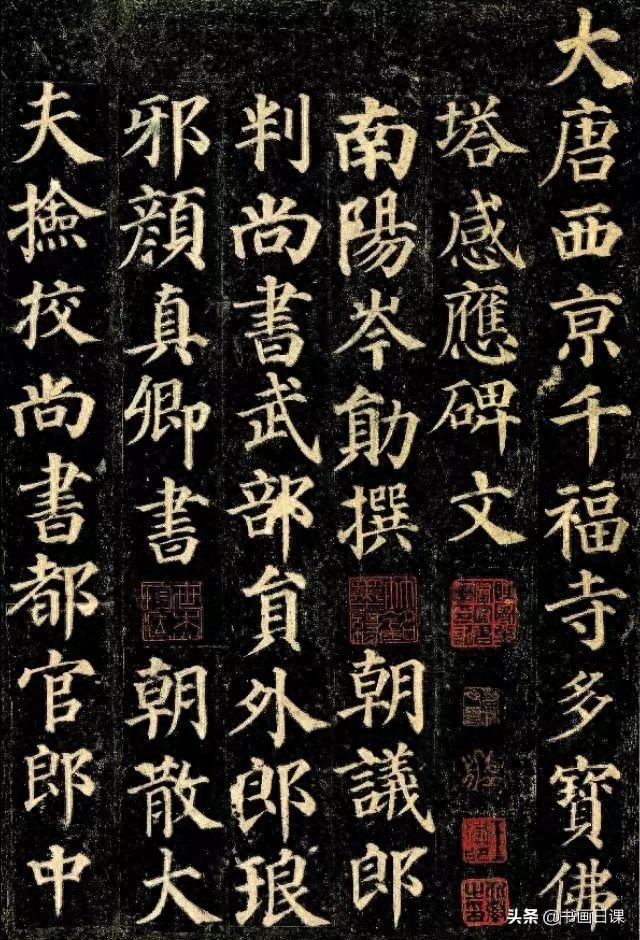 大唐西京千福寺多寶佛
塔感應碑文
南陽岑勛撰 朝議郎
判尚書武部貟外郎琅
邪顏真卿書 朝散大
夫撿校尚書都官郎中
头条 @书画日课